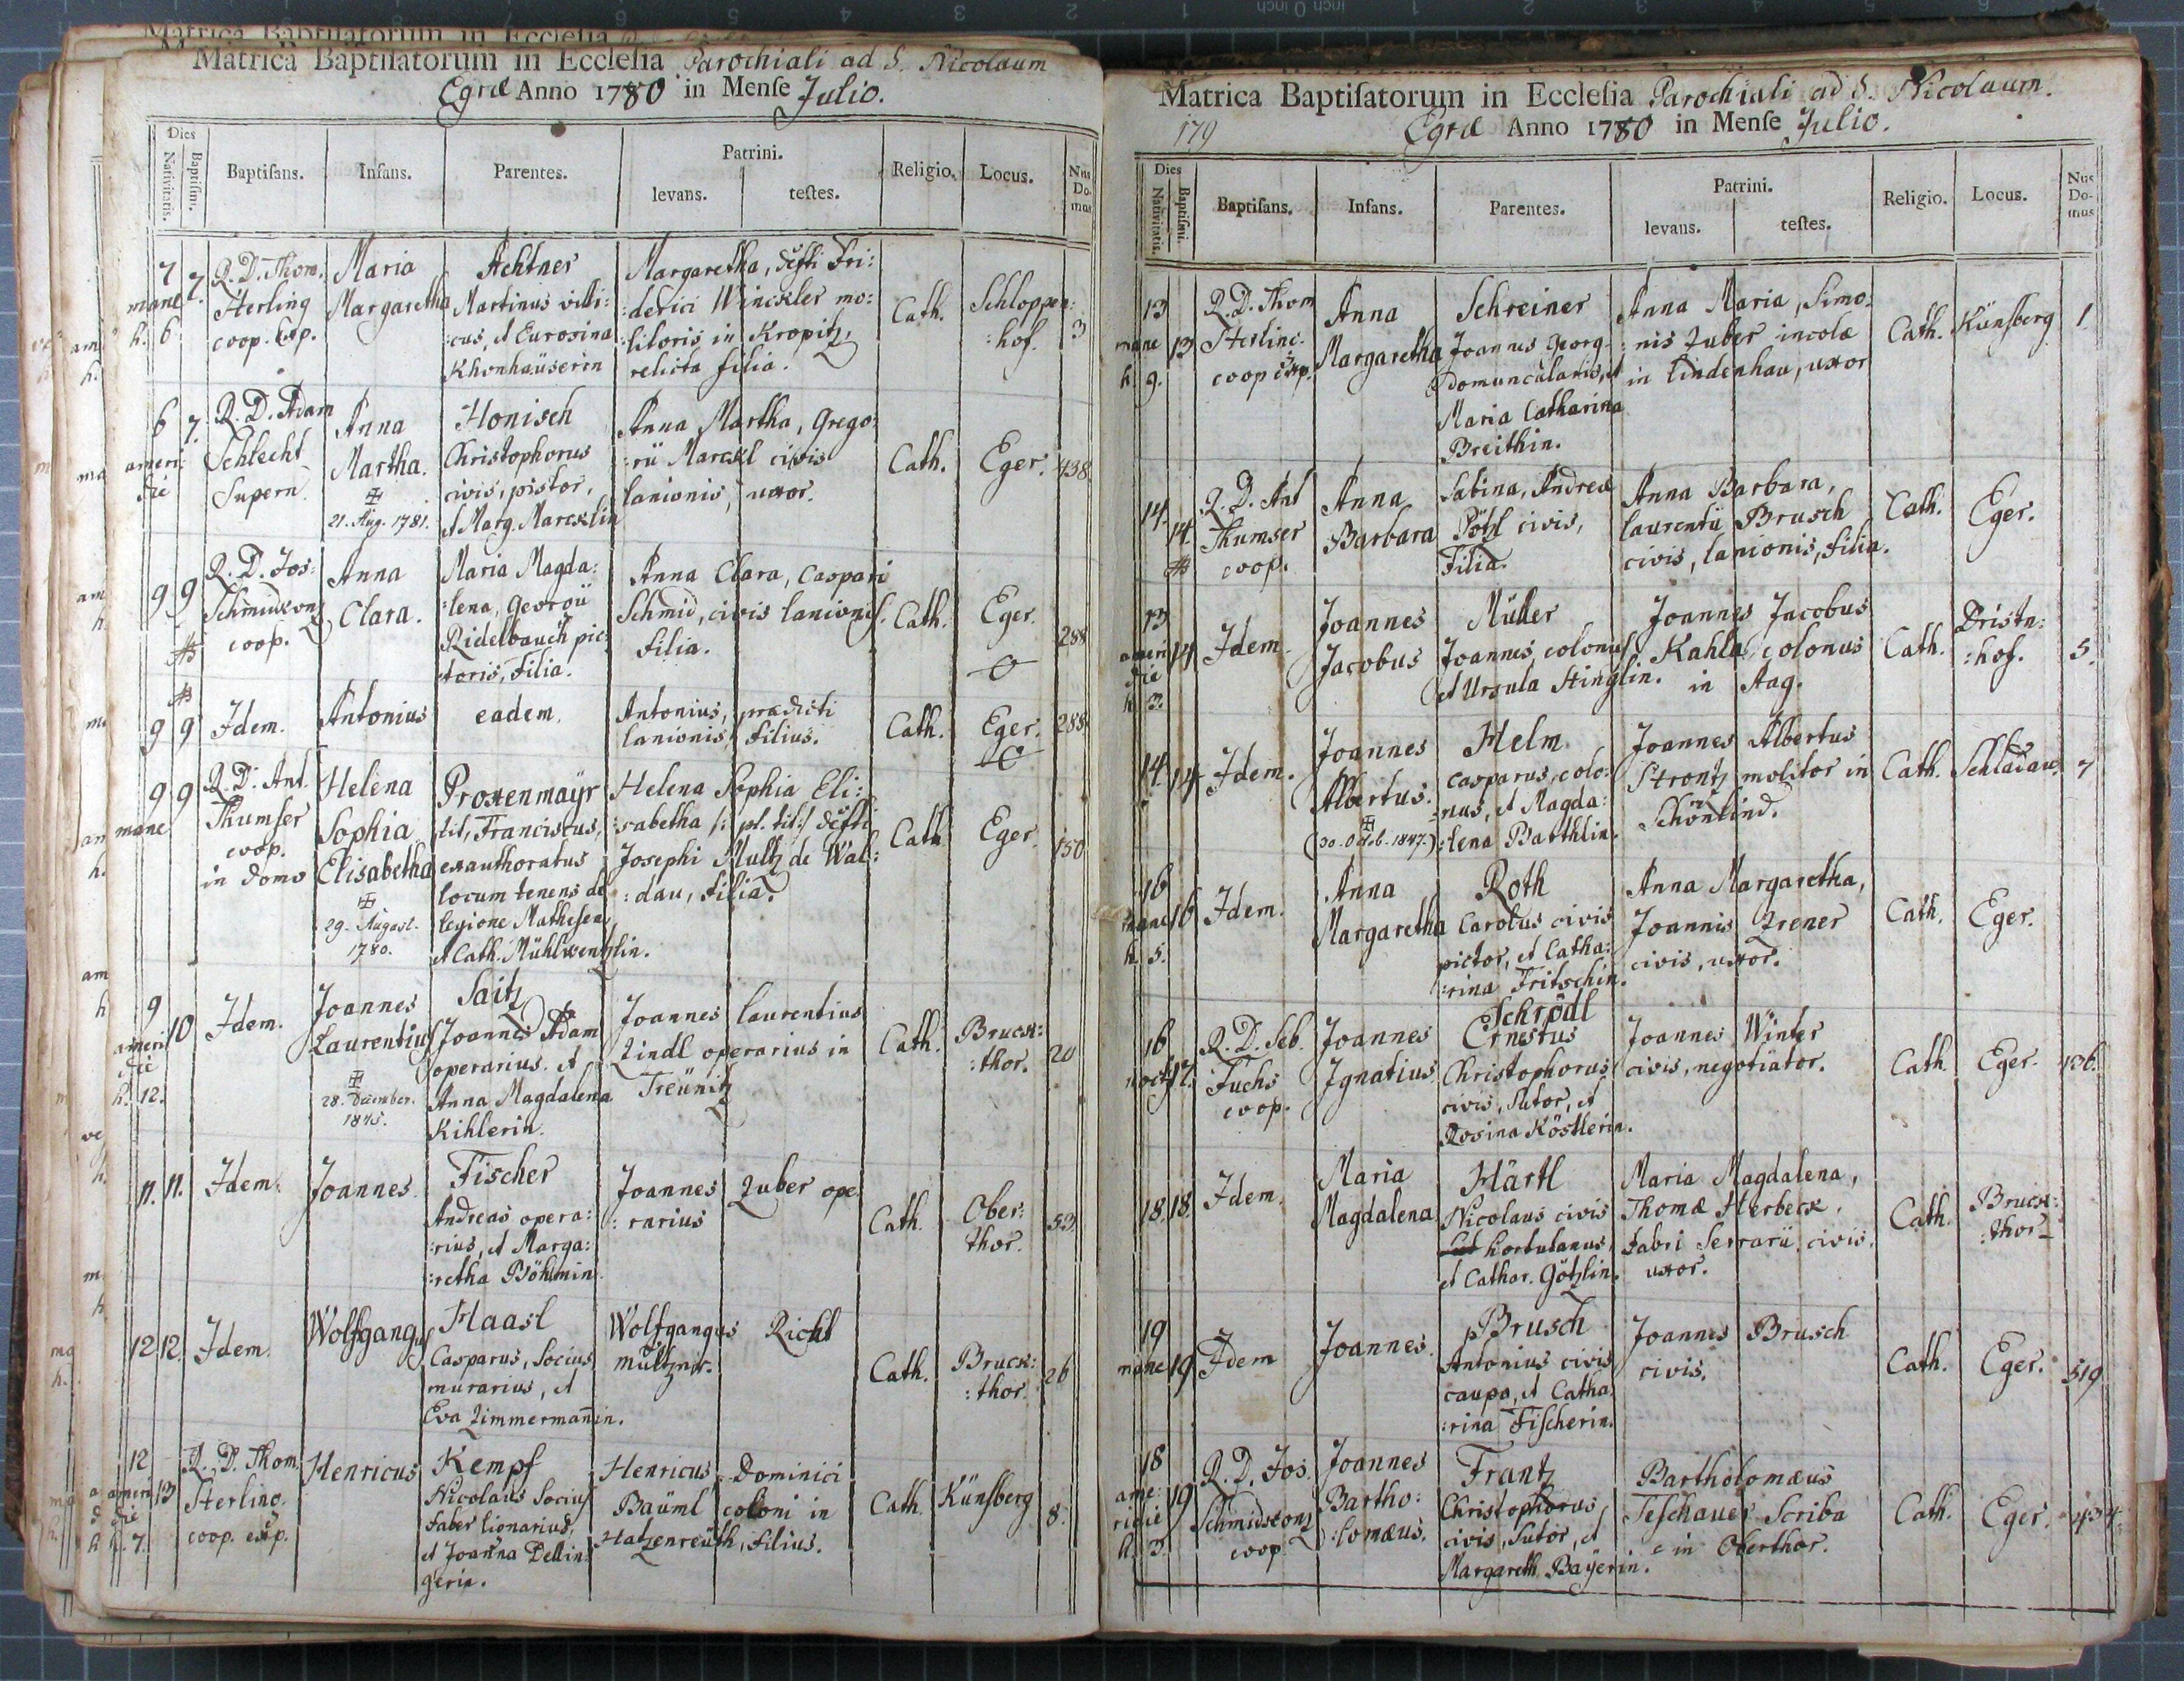 Matrica Baptisatorum in Ecclesia Parochiali ad S. Nicolaum
Egræ Anno 1780 in Mense Julio.
Dies
Nativitatis.
Baptismi.
Baptisans.
Infans.
Parentes.
Patrini.
levans.
testes.
Religio.
Locus.
Nus Do-mus
7 mane h. 6
7.
R. D. Thom. Sterling coop. exp.
Maria Margaretha
Achtner
Martinus villi:
:cus, et Eurosina
Khonhäuserin
Margaretha, defti Fri:
:derici Winckler mo:
:litoris in Kropitz,
relicta filia.
Cath.
Schloppen:
:hof.
3
6 ameri:die
7.
R. D. Adam Schlecht Supern.
Anna Martha.
21. Aug. 1781.
Honisch
Christophorus
civis, pistor,
et Marg. Marcklin
Anna Martha, Grego:
:rii Marckl civis
lanionis, uxor.
Cath.
Eger.
438
9
9
R. D. Jos: coop.
Anna Clara.
Maria Magda:
:lena, Georgii
Ridelbauch pic:
:toris, Filia.
Anna Clara, Caspari
Schmid, civis lanionis.
Filia.
Cath.
Eger.
288
9
9
Idem.
Antonius
eadem.
Antonius, prædicti
lanionis, filius.
Cath.
Eger.
288
9 mane
9
R. D. Ant. Thumser coop. in domo
Helena Sophia Elisabetha
29. August. 1780.
Proxenmayr
tit, Franciscus,
exauthoratus
locum tenens de
legione
et Cath. Mühlwentzlin.
Helena Sophia Eli:
:sabetha /: pl. tit:/ defti
Josephi Multz de Wal:
:dau, filia.
Cath
Eger
150
9 ameri die h. 12.
10
Idem.
Joannes Laurentius
28. December. 1845.
Saitz
Joannes Adam
operarius. et
Anna Magdalena
Kihlerin.
Joannes Laurentius
Zindl operarius in
Treünitz
Cath.
Bruck:
:thor.
20
11.
11.
Idem.
Joannes.
Fischer
Andreas opera:
:rius, et Marga:
:retha Böhmin
Joannes Zuber ope
:rarius
Cath.
Ober:
thor.
53
12
12.
Idem.
Wolfgangus
Haasl
Casparus, Socius
murarius, et
Eva Zimmermañin.
Wolfgangus Richl
Cath.
Bruck:
:thor.
26
12 ameri die h. 7.
13
R. D. Thom. Sterling. coop. exp.
Henricus
Kempf
Nicolaus Socius
faber lionarius,
et Joanna Dellin:
gerin.
Henricus, Dominici
Baüml coloni in
Hatzenreüth, filius.
Cath.
Künsberg
8.
Matrica Baptisatorum in Ecclesia Parochiali ad S. Nicolaum.
179
Egræ Anno 1780 in Mense Julio.
Dies
Nativitatis.
Baptismi.
Baptisans.
Infans.
Parentes.
Patrini.
levans.
testes.
Religio.
Locus.
Nus Do-mus
13 mane h. 9.
13
R. D. Thom Sterling. coop exp.
Anna Margaretha
Schreiner
Joannes Georg.
Domuncularis, et
Maria Catharina
Breithin.
Anna Maria, Simo:
:nis Zuber incolæ
in Lindenhau, uxor
Cath.
Künsberg
1.
14.
14.
R. D. Ant Thumser coop.
Anna Barbara
Sabina, Andreæ
Pötzl civis,
Filia.
Anna Barbara,
Laurentii Brusch
civis, lanionis, filia.
Cath.
Eger.
13 ameri die h 3.
14
Idem.
Joannes Jacobus
Müller
Joannes colonus
et Ursula Stinglin.
Joannes Jacobus
Kahla, colonus
in Aag.
Cath.
Dristn:
:hof.
5.
14.
14
Idem.
Joannes Albertus.
(30. Octob. 1847.)
Helm
Casparus, colo:
:nus, et Magda:
:lena Barthlin.
Joannes Albertus
Strontz molitor in
Schönlind.
Cath.
Schladau
7
16 mane h. 5.
16
Idem.
Anna Margaretha
Roth
Carolus civis
pictor, et Catha:
:rina Fritschin.
Anna Margaretha,
Joannis Zrener
civis, uxor.
Cath.
Eger.
16 noct
17.
R. D. Seb. Fuchs coop.
Joannes Ignatius
Schrödl
Ernestus
Christophorus
civis, Sutor, et
Rosina Köstlerin.
Joannes Winter
civis, negotiator.
Cath
Eger.
136.
18.
18.
Idem.
Maria Magdalena
Härtl
Nicolaus civis
hortulanus,
et Cathar. Götzlin.
Maria Magdalena,
Thomæ Herbeck,
fabri Serrarii, civis.
uxor.
Cath.
Bruck:
:thor
19 mane
19
Idem
Joannes.
Brusch
Antonius civis
caupo, et Catha:
:rina Fischerin.
Joannes Brusch
civis.
Cath.
Eger.
519
18 ame:ridie h. 3.
19
R. D. Jos. coop
Joannes Bartho:
:lomæus.
Frantz
Christophorus
civis, Sutor, et
Margareth Bayerin.
Bartholomæus
Teschauer Scriba
in Oberthor.
Cath.
Eger.
434